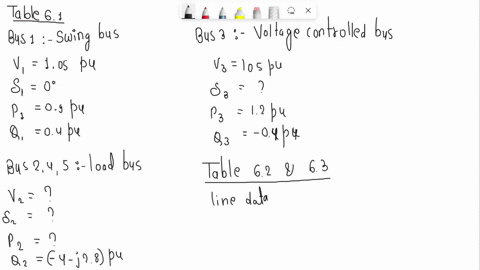 Table 6.1
Bus 1 :- Swing bus
V1 = 1.05 pu
δ1 = 0°
P1 = 0.9 pu
Q1 = 0.4 pu
Bus 2,4,5 :- load bus
V2 = ?
δ2 = ?
P2 = ?
Q2 = (-4-j2.8) pu
Bus 3 :- Voltage controlled bus
V3 = 105 pu
δ3 = ?
P3 = 1.2 pu
Q3 = -0.4 pu
Table 6.2 & 6.3
line data